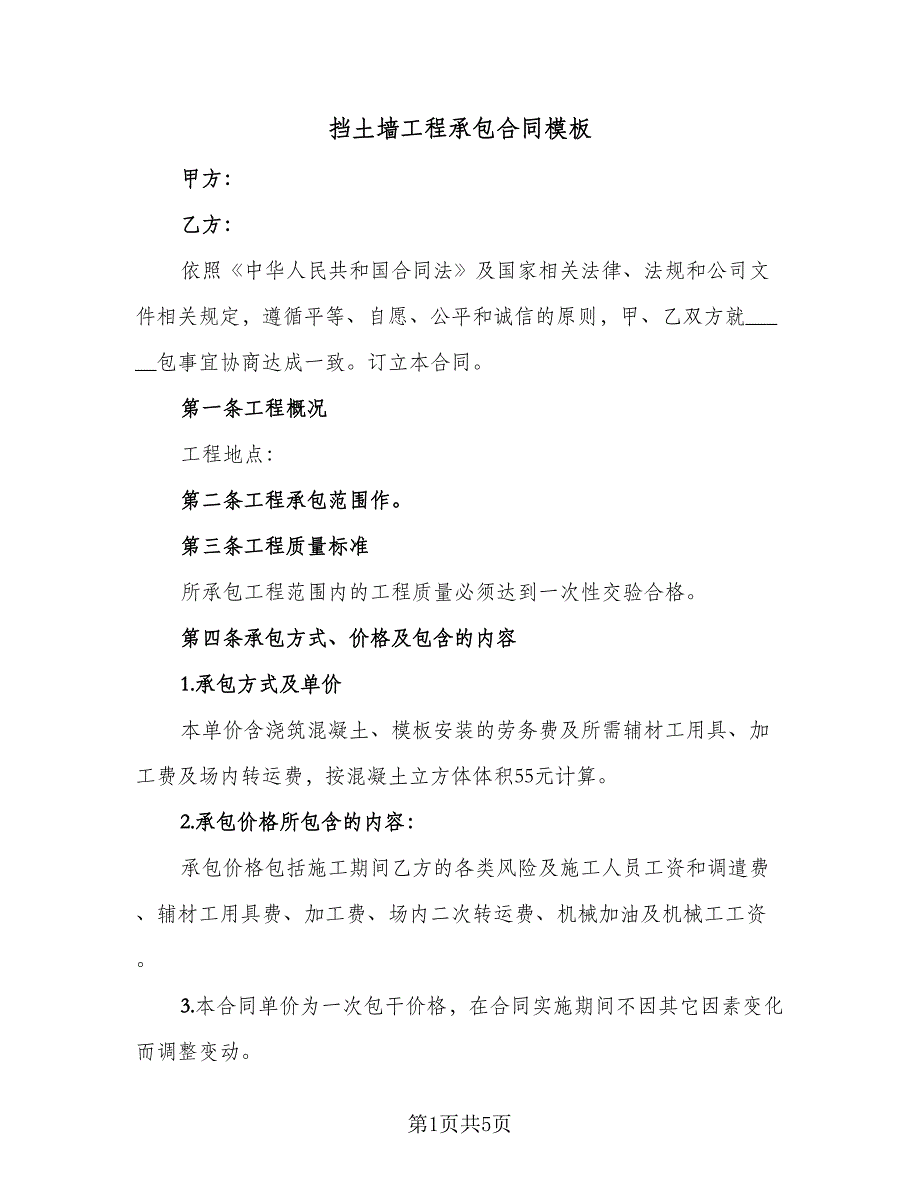 挡土墙工程承包合同模板
甲方：
乙方：
依照《中华人民共和国合同法》及国家相关法律、法规和公司文
件相关规定，遵循平等、自愿、公平和诚信的原则，甲、乙双方就___
__包事宜协商达成一致。订立本合同。
第一条工程概况
工程地点：
第二条工程承包范围作。
第三条工程质量标准
所承包工程范围内的工程质量必须达到一次性交验合格。
第四条承包方式、价格及包含的内容
1.承包方式及单价
本单价含浇筑混凝土、模板安装的劳务费及所需辅材工用具、加
工费及场内转运费，按混凝土立方体体积55元计算。
2.承包价格所包含的内容：
承包价格包括施工期间乙方的各类风险及施工人员工资和调遣费
、辅材工用具费、加工费、场内二次转运费、机械加油及机械工工资
。
3.本合同单价为一次包干价格，在合同实施期间不因其它因素变化
而调整变动。
第1页共5页